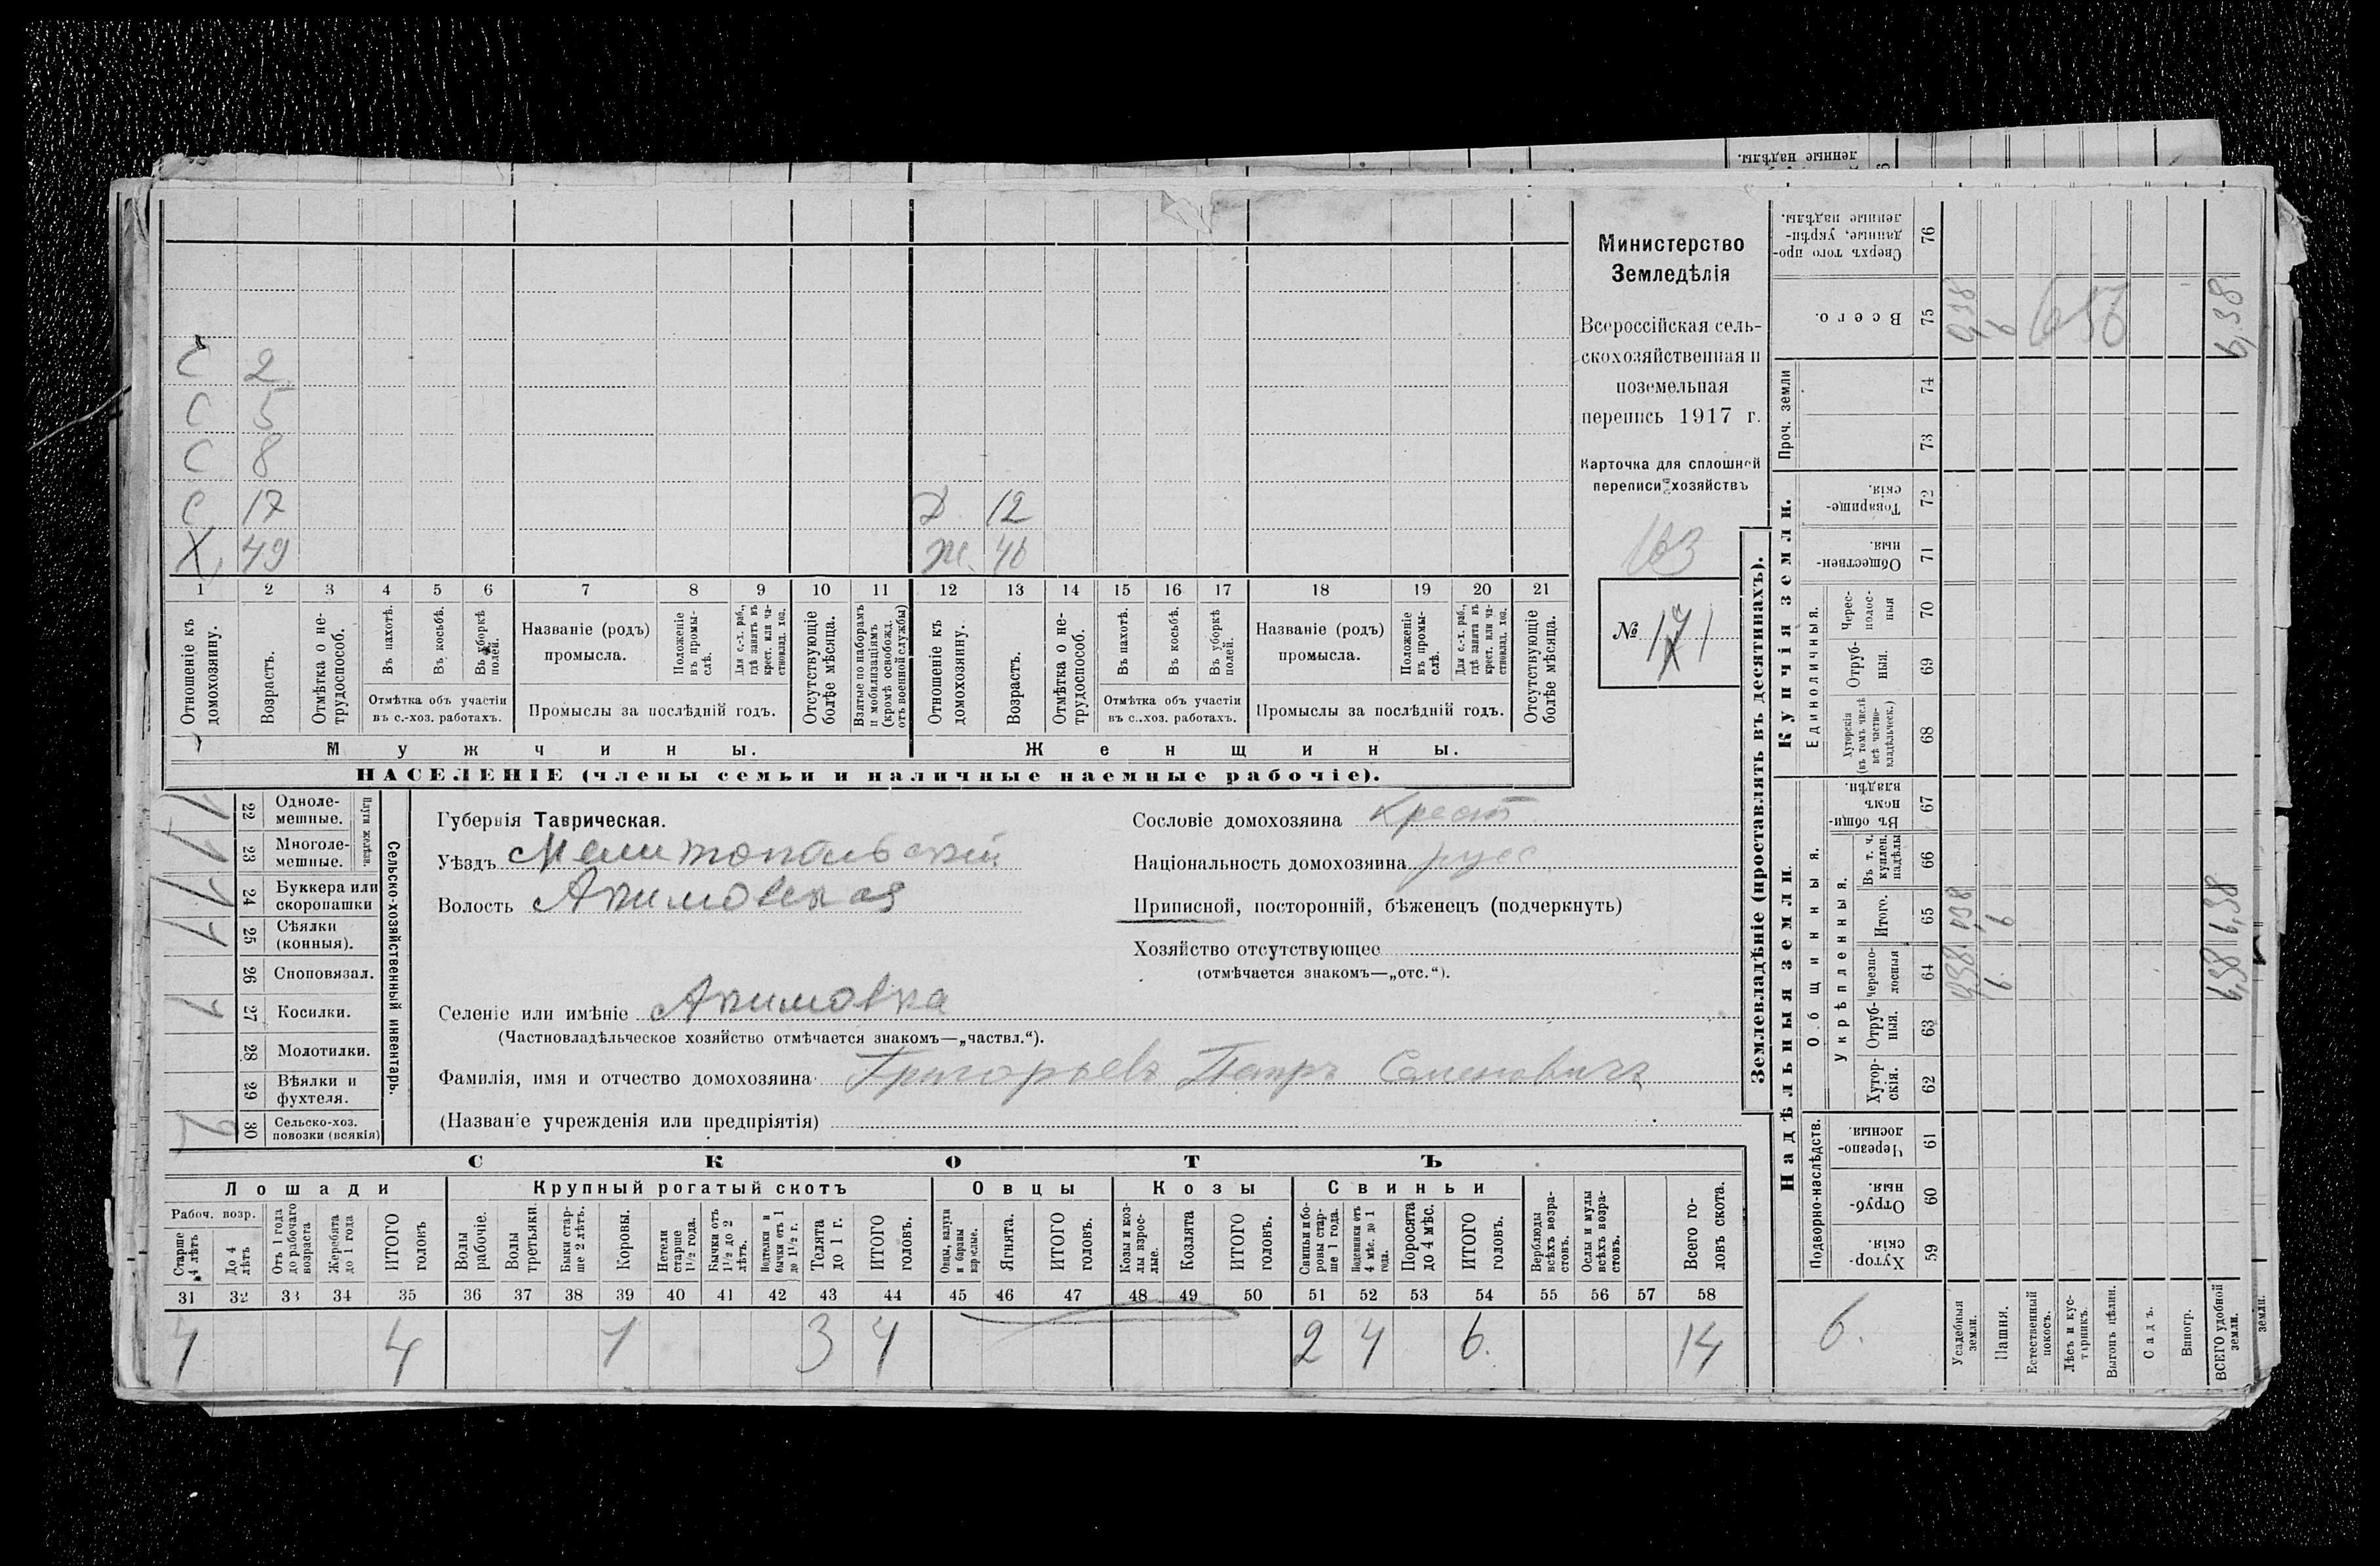 ленные надѣлы.
С 2
С 5
С 8
С 17 Д 12
Х 49 Ж. 46
1 2 3 4 5 6 7 8 9 10 11 12 13 14 15 16 17 18 19 20 21
Отношеніе къ домохозяину.
Возрастъ.
Отмѣтка о не-трудоспособ.
Въ пахотѣ.
Въ косьбѣ.
Въ уборкѣ полей.
Отмѣтка объ участіи въ с.-хоз. работахъ.
Названіе (родъ) промысла.
Положеніе въ промы-слѣ.
Для с.-х. раб., гдѣ занятъ въ крест. или ча-стновлад. хоз.
Промыслы за послѣдній годъ.
Отсутствующіе болѣе мѣсяца.
Взятые по наборамъ и мобилизаціямъ (кромѣ освобожд. отъ военной службы)
Отношеніе къ домохозяину.
Возрастъ.
Отмѣтка о не-трудоспособ.
Въ пахотѣ.
Въ косьбѣ.
Въ уборкѣ полей.
Отмѣтка объ участіи въ с.-хоз. работахъ.
Названіе (родъ) промысла.
Положеніе въ промы-слѣ.
Для с.-х. раб., гдѣ занята въ крест. или ча-стновлад. хоз.
Промыслы за послѣдній годъ.
Отсутствующіе болѣе мѣсяца.
Мужчины.
Женщины.
НАСЕЛЕНІЕ (члены семьи и наличные наемные рабочіе).
Министерство
Земледѣлія
Всероссійская сель-
скохозяйственная и
поземельная
перепись 1917 г.
Карточка для сплошной
переписи хозяйствъ
163
№ 171
22 Одноле-мешные. 1
23 Многоле-мешные. 1
Плуги желѣзн.
24 Буккера или скоропашки 1
25 Сѣялки (конныя). 1
26 Сноповязал.
27 Косилки. 1
28 Молотилки.
29 Вѣялки и фухтеля.
30 Сельско-хоз. повозки (всякія) 2
Сельско-хозяйственный инвентарь.
Губернія Таврическая.
Уѣздъ Мелитопольскій
Волость Акимовская
Селеніе или имѣніе Акимовка
(Частновладѣльческое хозяйство отмѣчается знакомъ—„частвл.“).
Фамилія, имя и отчество домохозяина Григорьевъ Петръ Семеновичъ
(Названіе учрежденія или предпріятія)
Сословіе домохозяина Крест
Національность домохозяина русс
Приписной, посторонній, бѣженецъ (подчеркнуть)
Хозяйство отсутствующее
(отмѣчается знакомъ—„отс.“).
СКОТЪ
Лошади
Крупный рогатый скотъ
Овцы
Козы
Свиньи
Рабоч. возр.
Старше 4 лѣтъ
До 4 лѣтъ
Отъ 1 года до рабочаго возраста
Жеребята до 1 года
ИТОГО головъ
Волы рабочіе.
Волы третьяки.
Быки стар-ше 2 лѣтъ.
Коровы.
Нетели старше 1½ года.
Бычки отъ 1½ до 2 лѣтъ.
Подтелки и бычки отъ 1 до 1½ г.
Телята до 1 г.
ИТОГО головъ.
Овцы, валухи и бараны взрослые.
Ягнята.
ИТОГО головъ.
Козы и коз-лы взрос-лые.
Козлята
ИТОГО головъ.
Свиньи и бо-ровы стар-ше 1 года.
Подсвинки отъ 4 мѣс. до 1 года.
Поросята до 4 мѣс.
ИТОГО головъ.
Верблюды всѣхъ возра-стовъ.
Ослы и мулы всѣхъ возра-стовъ.
Всего го-ловъ скота.
31 32 33 34 35 36 37 38 39 40 41 42 43 44 45 46 47 48 49 50 51 52 53 54 55 56 57 58
4 4 1 3 4 2 4 6. 14
Землевладѣніе (проставлять въ десятинахъ).
Купчія земли.
Надѣльныя земли.
Сверхъ того про-данные, укрѣп-ленные надѣлы. 76
Всего. 75
Проч. земли 74 73
Товарище-скія. 72
Обществен-ныя. 71
Единоличныя.
Черес-полос-ныя 70
Отруб-ныя. 69
Хуторскія (въ томъ числѣ всѣ частно-владѣльческ.) 68
Общинныя.
Въ общин-номъ владѣн. 67
Укрѣпленныя.
Въ т. ч. куплен. надѣлы 66
Итого. 65
Черезпо-лосныя 64
Отруб-ныя. 63
Хутор-скія. 62
Подворно-наслѣдств.
Черезпо-лосныя. 61
Отруб-ныя. 60
Хутор-скія. 59
6.
Усадебныя земли. 0,38 0,38 0,38
Пашня. 6. 6 6
Естественный покосъ.
Лѣсъ и кус-тарникъ.
Выгонъ цѣлин.
Садъ.
Виногр.
ВСЕГО удобной земли. 6,38 6,38 6,38
земли.